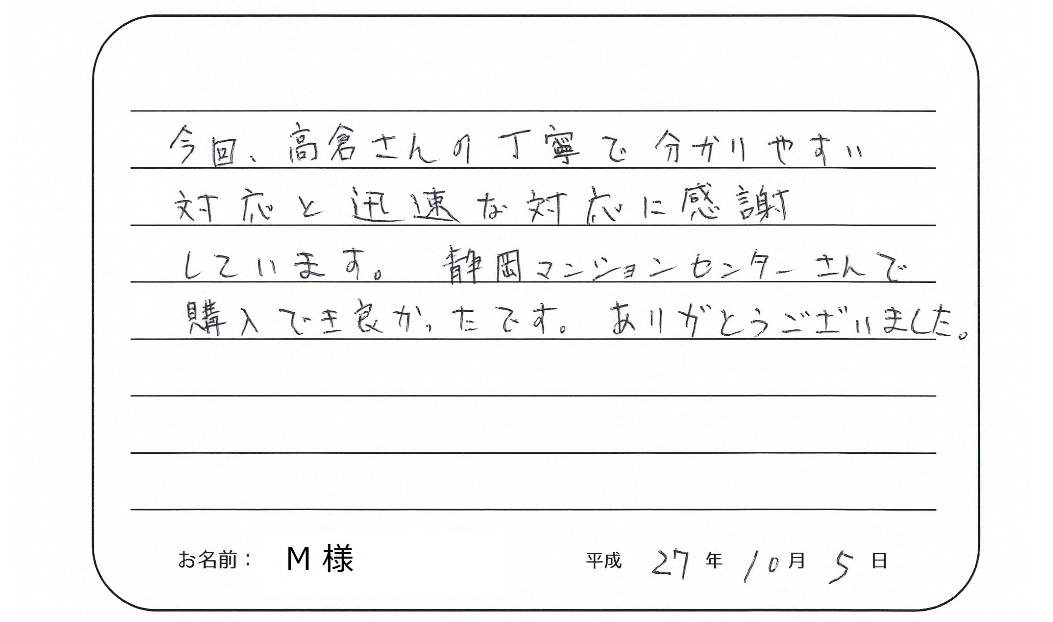 今回、高倉さんの丁寧で分かりやすい
対応と迅速な対応に感謝
しています。 静岡マンションセンターさんで
購入でき良かったです。ありがとうございました。
お名前： M 様 平成 27 年 10 月 5 日